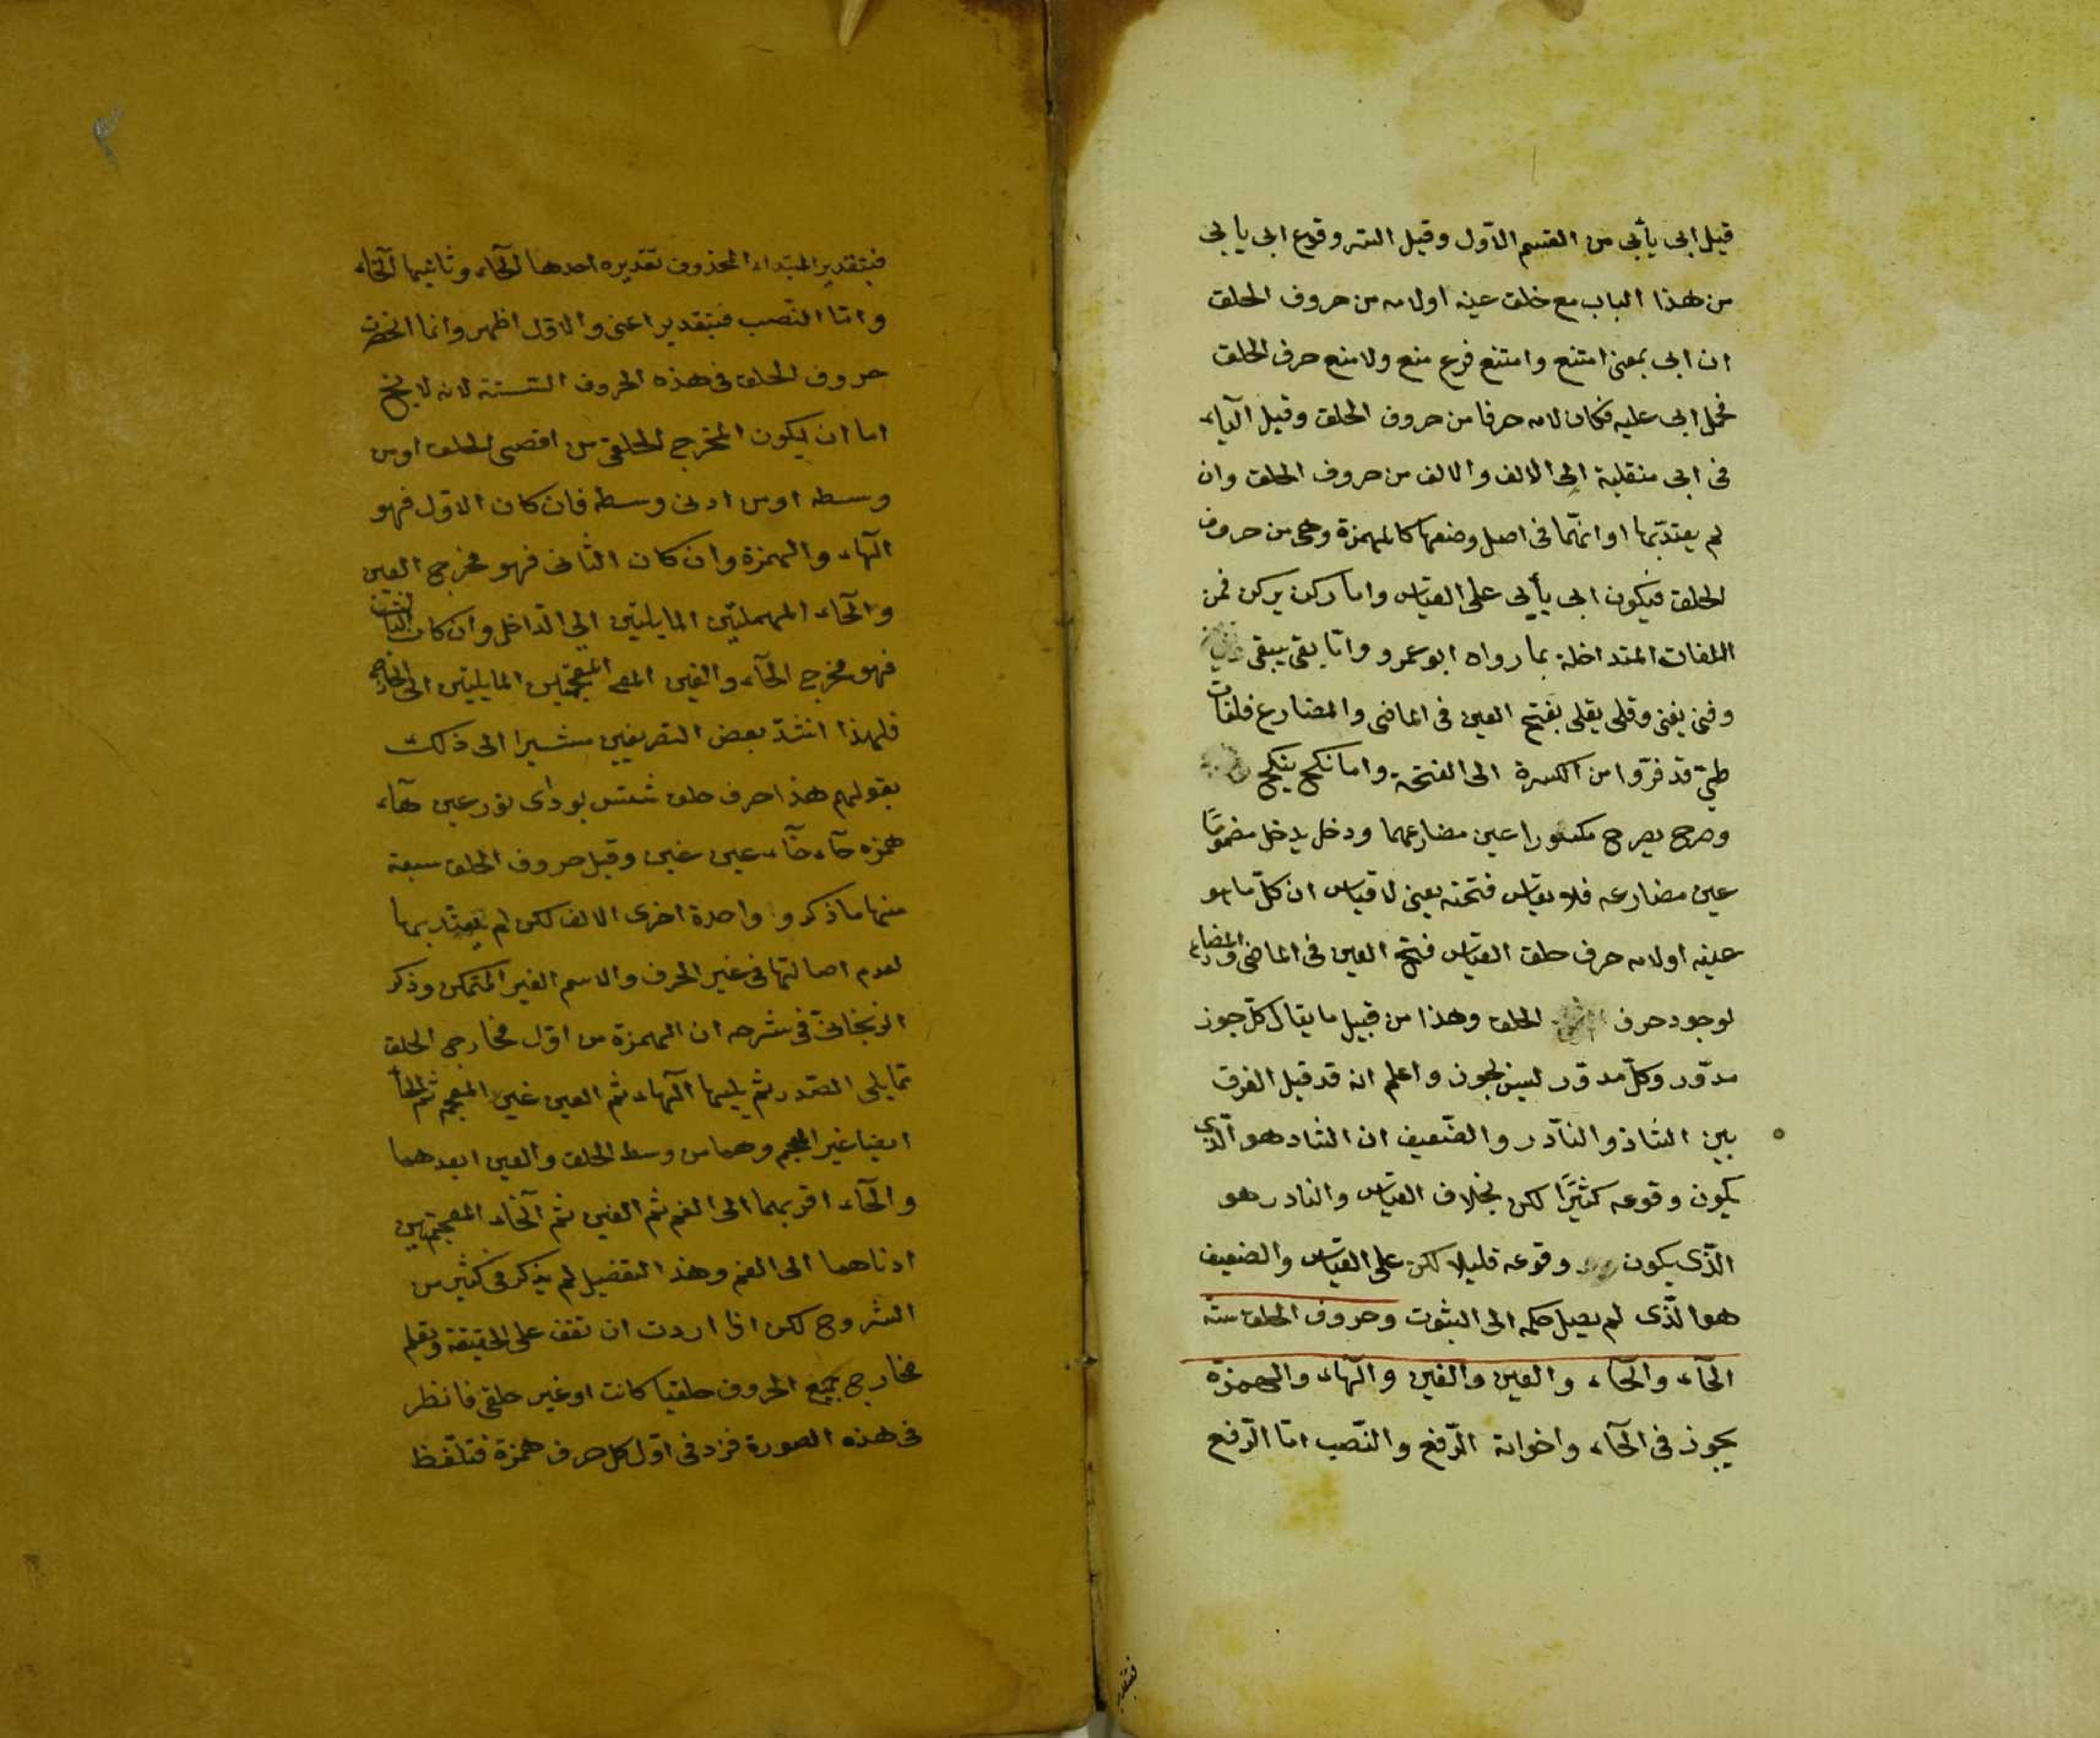 قيل ابى يأبى من القسم الاوّل وقيل السر وقوع ابى يابى
من هذا الباب مع خلف عينه اولامه من حروف الحلق
ان ابى بمعنى امتنع وامتنع فرع منع ولا منع حرف الحلق
فحمل ابى عليه فكان لامه حرفا من حروف الحلق وقيل الياء
فى ابى منقلبة الى الالف والالف من حروف الحلق وان
لم يعتدّ بها او انّها فى اصل وضعها كالهمزة وهى من حروف
الحلق فيكون ابى يأبى على القياس واما ركن يركن فمن
اللغات المتداخلة بما رواه ابو عمرو وامّا بقى يبقى
وفنى يفنى وقلى يقلى بفتح العين فى الماضى والمضارع فلغات
طىّ قد فرّوا من الكسرة الى الفتحة واما نكح ينكح
وصرح يصرح مكسورا عين مضارعهما ودخل يدخل مضمومًا
عين مضارعه فلا يقاس فتحته يعنى لا قياس ان كلّ ما هو
عينه اولامه حرف حلق القياس فتح العين فى الماضى والمضارع
لوجود حرف الحلق وهذا من قبيل ما يقال كلّ جوز
مدوّر وكلّ مدوّر ليس بجوز واعلم انه قد قيل الفرق
بين الشاذ والنّادر والضّعيف ان الشاد هو الّذى
يكون وقوعه كثيرًا لكن بخلاف القياس والنادر هو
الّذى يكون وقوعه قليلا لكن على القياس والضعيف
هو الّذى لم يصل حكمه الى الثبوت وحروف الحلق ستة
الحاء والخاء والعين والغين والهاء والهمزة
يجوز فى الحاء واخواته الرّفع والنّصب امّا الرّفع
فبتقدير
فبتقدير المبتداء المحذوف تقديره احدها الحاء وثانيها الخاء
وامّا النّصب فبتقدير اعنى والاوّل اظهر وانما انحصرت
حروف الحلق فى هذه الحروف الستة لانه لا يخ
اما ان يكون المخرج الحلقى من اقصى الحلق اومن
وسطه اومن ادنى وسطه فان كان الاوّل فهو
الهاء والهمزة وان كان الثانى فهو مخرج العين
والحاء المهملتين المايلتين الى الدّاخل وان كان الثالث
فهو مخرج الخاء والغين المعجمتين المايلتين الى الخارج
فلهذا انشدّ بعض التصريفين مشيرا الى ذلك
بقولهم هذا حرف حلق شش بوداى نور عين هآء
همزه حآء خآء عين غين وقيل حروف الحلق سبعة
منها ما ذكر و واحدة اخرى الالف لكن لم يعتد بها
لعدم اصالتها فى غير الحرف والاسم الغير المتمكن وذكر
الزنجانىّ فى شرحه ان الهمزة من اوّل مخارجى الحلق
ممّا يلى الصّدر ثم يليها الهاء ثم العين غين المعجم ثم الحاء
ايضا غير المعجم وهما من وسط الحلق والعين ابعدهما
والحآء اقربهما الى الفم ثم الغين ثم الخاء المعجمتين
ادناهما الى الفم وهذا التفصيل لم يذكر فى كثير من
الشروح لكن اذا اردت ان تقف على الحقيقة وتعلم
مخارج جميع الحروف حلقيا كانت اوغير حلقى فانظر
فى هذه الصورة فزد فى اوّل كل حرف همزة فتلفّظ